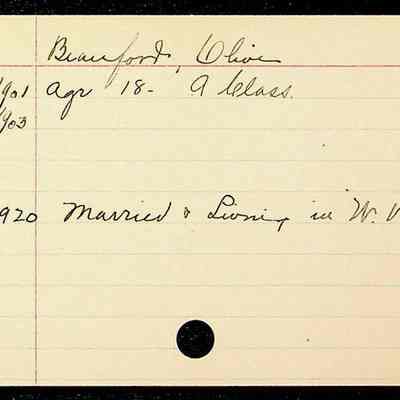 Beauford, Olive
1901 Agr 18- A Class.
1903
1920 Married & Living in W. V